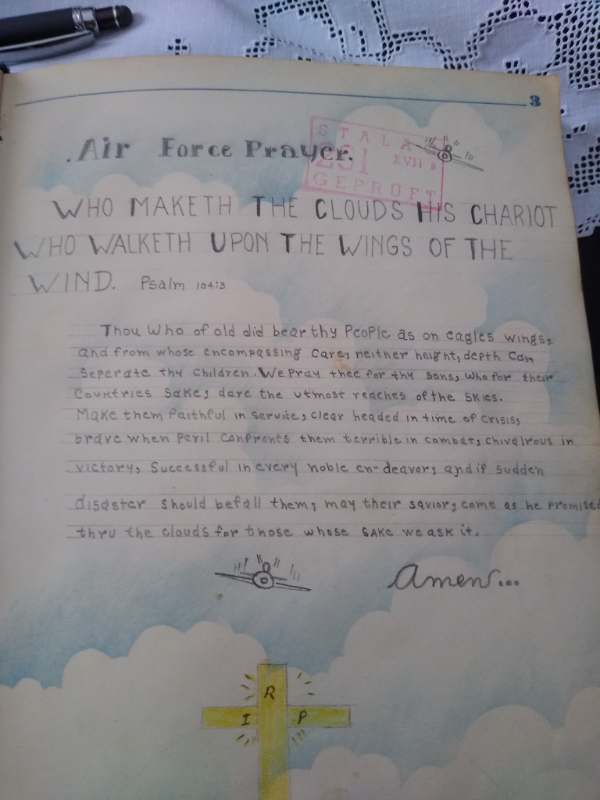 3
.Air Force Prayer.
STALAG XVII B
GEPRÜFT
WHO MAKETH THE CLOUDS HIS CHARIOT
WHO WALKETH UPON THE WINGS OF THE
WIND. Psalm 104:3
Thou who of old did bear thy People as on eagles wings,
and from whose encompassing care, neither height, depth can
Seperate thy children. We Pray thee for thy sons, who for their
Countries sake, dare the utmost reaches of the skies.
Make them faithful in service, clear headed in time of crisis,
brave when peril confronts them terrible in combat, chivalrous in
victory, successful in every noble en-deavor, and if sudden
disaster should befall them, may their savior, come as he promised
thru the clouds for those whose sake we ask it.
Amen...
R
I P